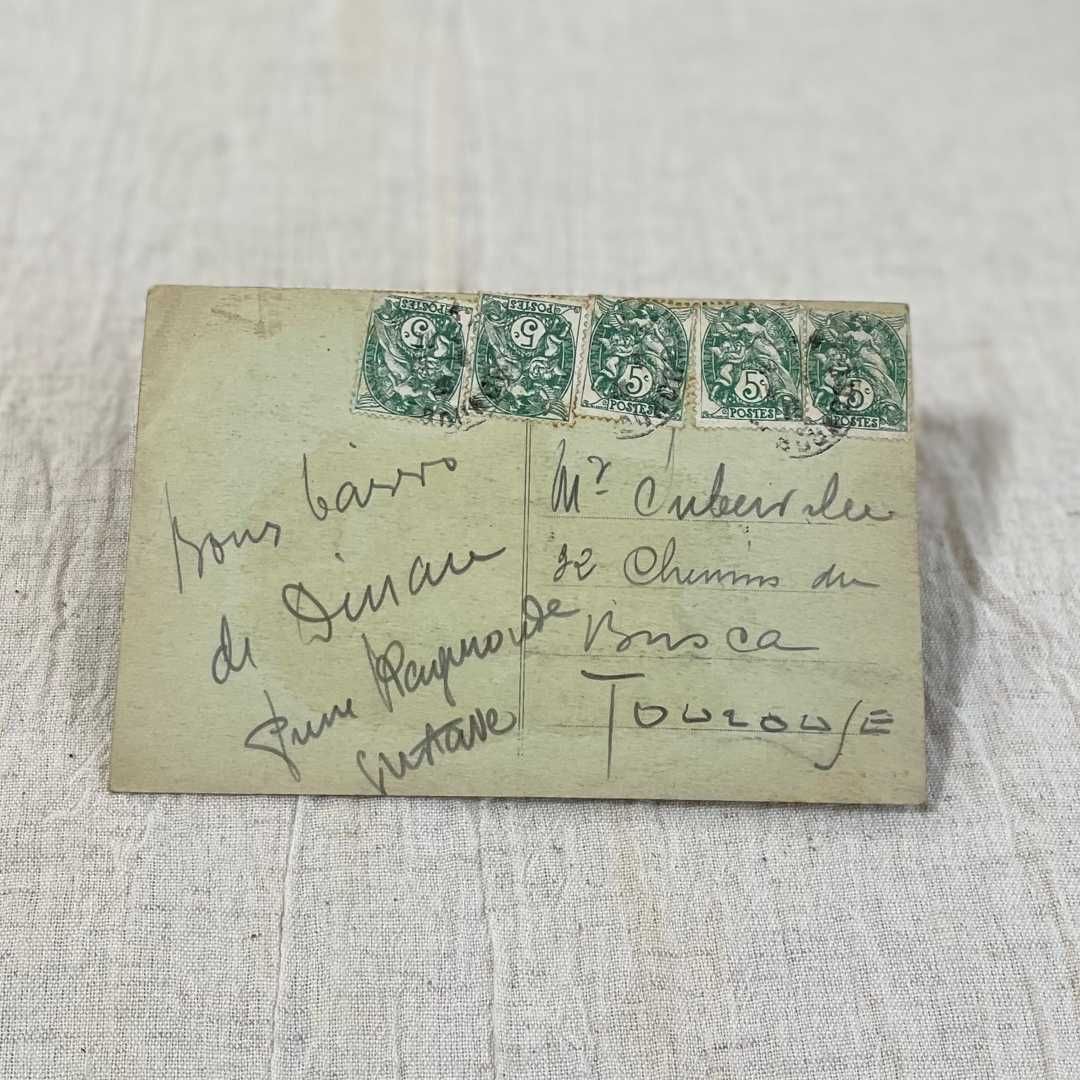 5c
POSTES
5c
POSTES
5c
POSTES
5c
POSTES
5c
POSTES
Bons baisers
de Dinan
Raymonde
Gustave
Mr
32 Chemin du
Busca
TOULOUSE